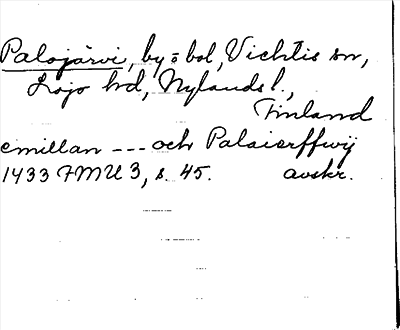 Palojärvi, by o bol, Vichtis sn,
Lojo hd, Nylands l.,
Finland
emillan --- och Palaiærffwij
1433 FMU 3, s. 45. avskr.